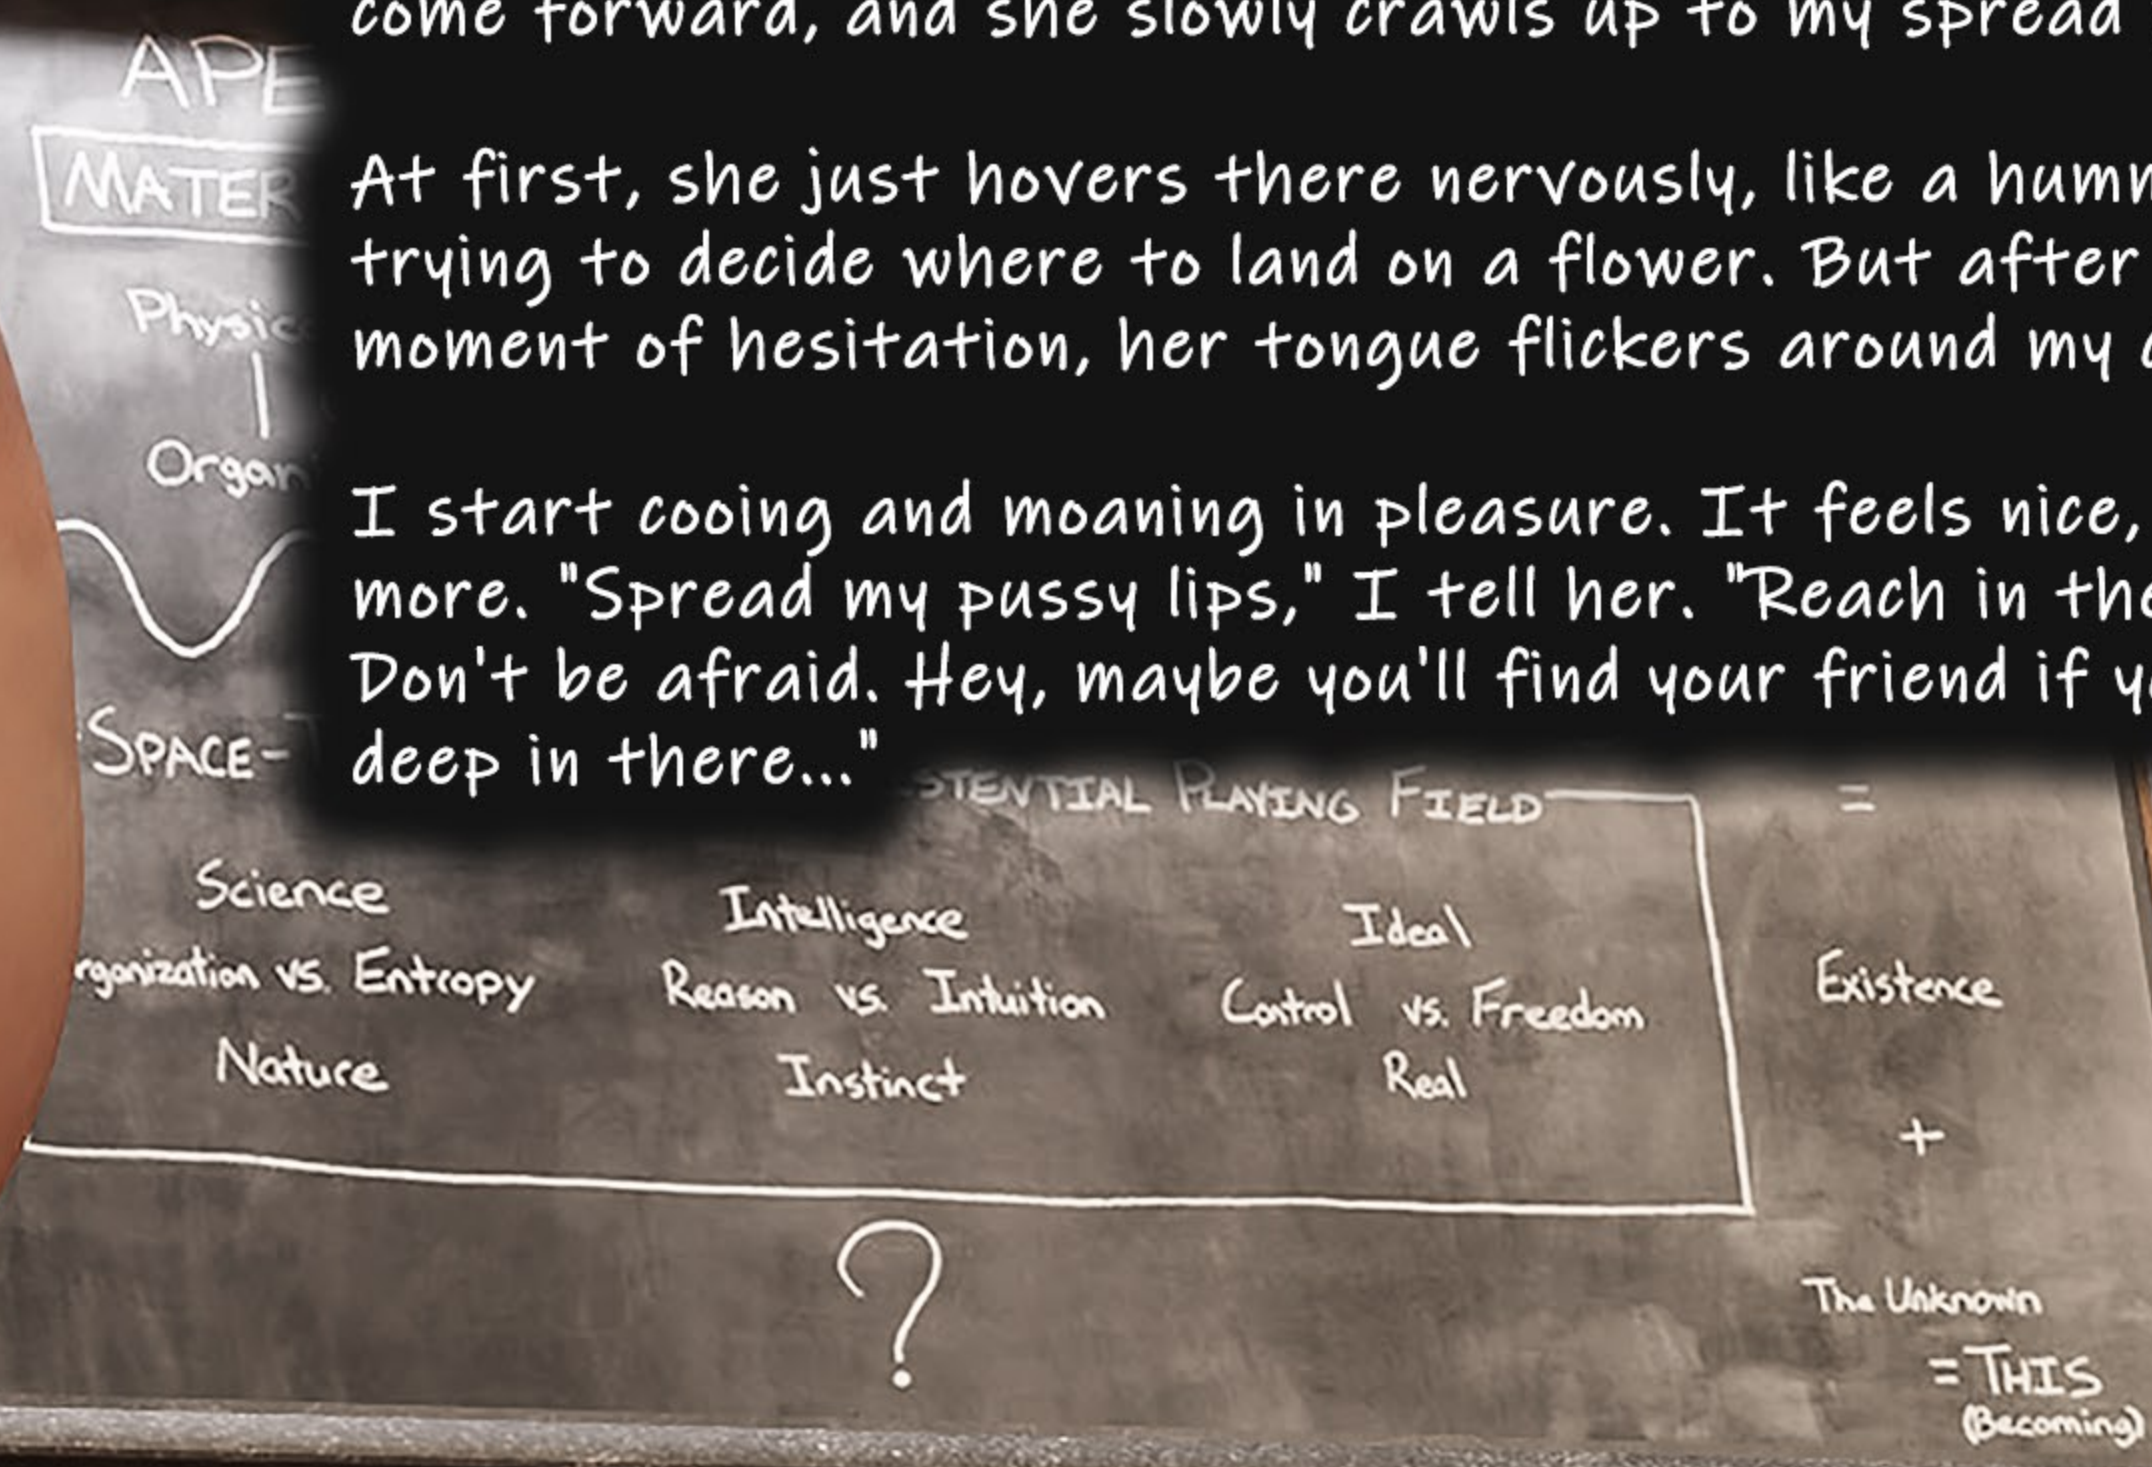 come forward, and she slowly crawls up to my spread
At first, she just hovers there nervously, like a
trying to decide where to land on a flower. But after
moment of hesitation, her tongue flickers around my
I start cooing and moaning in pleasure. It feels nice,
more. "Spread my pussy lips," I tell her. "Reach in
Don't be afraid. Hey, maybe you'll find your friend if
deep in there..."
APE
MATER
Physic
Organi
SPACE-
STENTIAL PLAYING FIELD
=
Science
Intelligence
Ideal
rganization vs. Entropy
Reason vs. Intuition
Control vs. Freedom
Existence
Nature
Instinct
Real
+
?
The Unknown
= THIS
(Becoming)